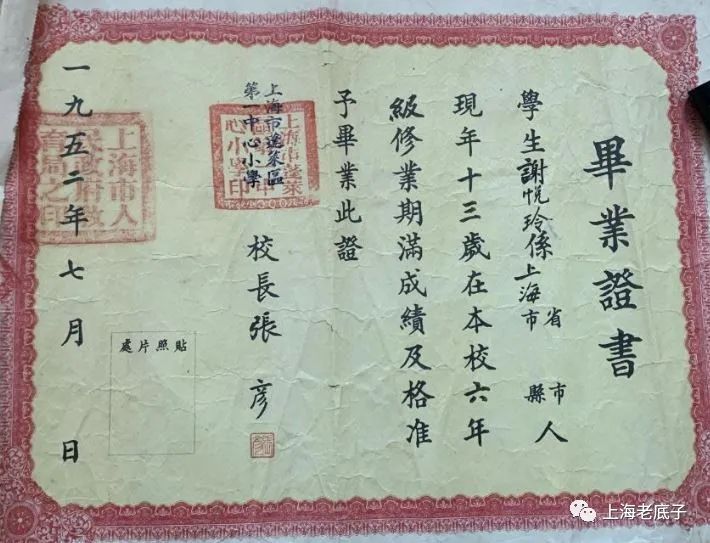 畢業證書
學生謝悅玲係上海市省市縣人
現年十三歲在本校六年
級修業期滿成績及格准
予畢業此證
上海市蓬萊區
第一中心小學
校長張彥
貼照片處
一九五二年七月日
上海市人
民政府教
育局之印
上海老底子